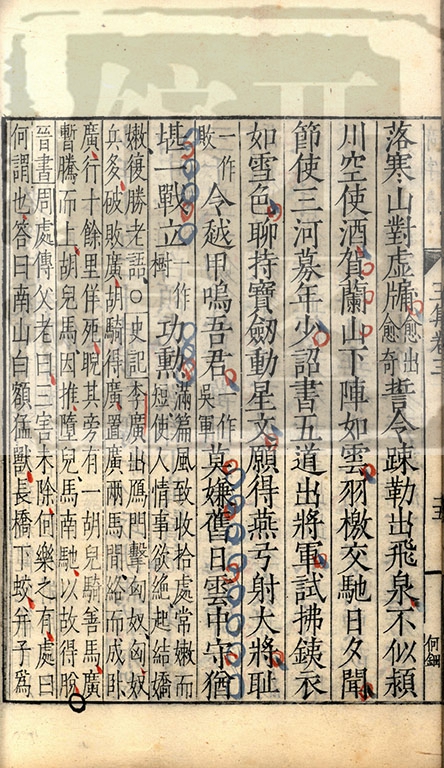 五
何鋼
落寒山對虛牖愈出愈奇誓令疎勒出飛泉不似潁
川空使酒賀蘭山下陣如雲羽檄交馳日夕聞
節使三河募年少詔書五道出將軍試拂銕衣
如雪色聊持寶劒動星文願得燕弓射大將恥
一作令越甲鳴吾君一作吳軍莫嫌舊日雲中守猶
堪一戰立一作樹功勳滿篇風致收拾處常嫩而
短使人情事欲絶起結嬌
嫩復勝老語○史記李廣出鴈門擊匈奴匈奴
兵多破敗廣胡騎得廣置廣兩馬間絡而成卧
廣行十餘里佯死睨其旁有一胡兒騎善馬廣
暫騰而上胡兒馬因推墮兒馬南馳以故得脫
晉書周處傳父老曰三害未除何樂之有處曰
何謂也答曰南山白額猛獸長橋下蛟并子為